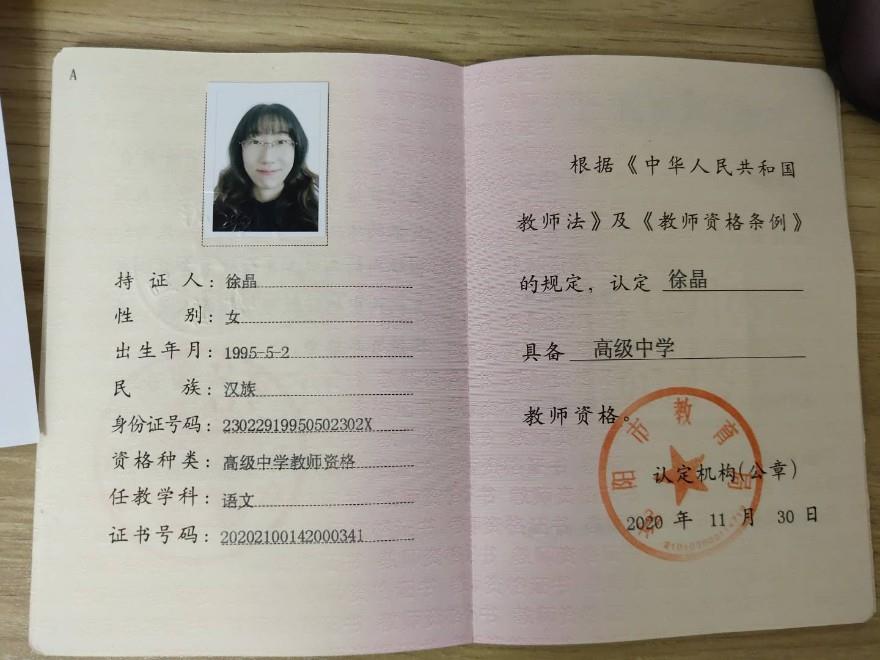 A
持证人：徐晶
性别：女
出生年月：1995-5-2
民族：汉族
身份证号码：23022919950502302X
资格种类：高级中学教师资格
任教学科：语文
证书号码：20202100142000341
根据《中华人民共和国
教师法》及《教师资格条例》
的规定，认定 徐晶
具备 高级中学
教师资格。
阳市教育局
认定机构(公章)
2020 年 11 月 30 日